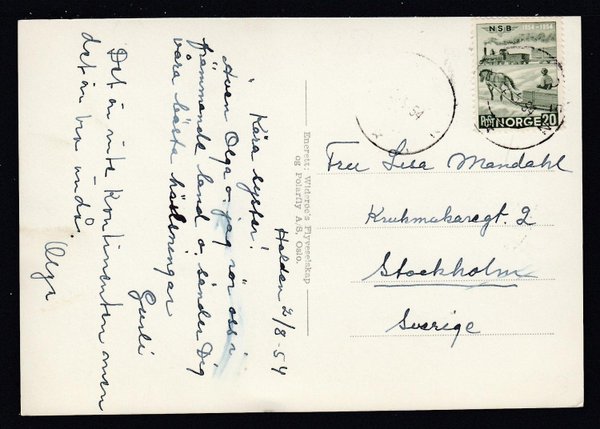 Halden 2/8-54
Kära syster!
Även Olga o. jag rör oss i
främmande land o. sänder Dig
våra bästa hälsningar
Gunli
Det är inte Kontinenten men
det är bra ändå. Olga
Enerett: Widerøe's Flyveselskap
og Polarfly A/S, Oslo.
NSB
1854-1954
NORGE 20
Fru Lisa Mandahl
Krukmakaregt. 2
Stockholm
Sverige